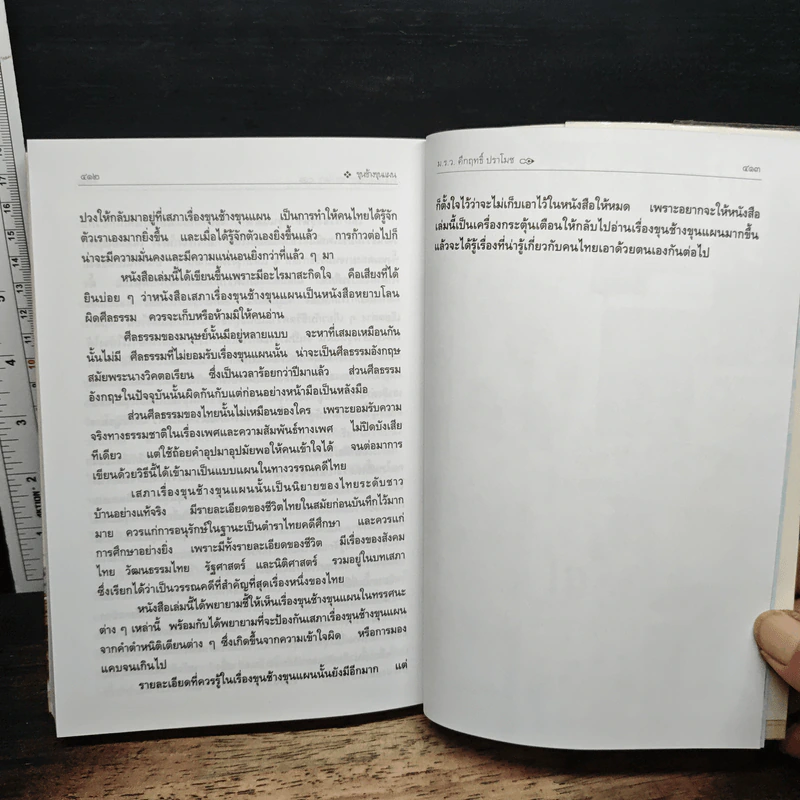 ๔๑๒
❖ ขุนช้างขุนแผน
ปวงให้กลับมาอยู่ที่เสภาเรื่องขุนช้างขุนแผน เป็นการทำให้คนไทยได้รู้จัก
ตัวเราเองมากยิ่งขึ้น และเมื่อได้รู้จักตัวเองยิ่งขึ้นแล้ว การก้าวต่อไปก็
น่าจะมีความมั่นคงและมีความแน่นอนยิ่งกว่าที่แล้ว ๆ มา
หนังสือเล่มนี้ได้เขียนขึ้นเพราะมีอะไรมาสะกิดใจ คือเสียงที่ได้
ยินบ่อย ๆ ว่าหนังสือเสภาเรื่องขุนช้างขุนแผนเป็นหนังสือหยาบโลน
ผิดศีลธรรม ควรจะเก็บหรือห้ามมิให้คนอ่าน
ศีลธรรมของมนุษย์นั้นมีอยู่หลายแบบ จะหาที่เสมอเหมือนกัน
นั้นไม่มี ศีลธรรมที่ไม่ยอมรับเรื่องขุนแผนนั้น น่าจะเป็นศีลธรรมอังกฤษ
สมัยพระนางวิคตอเรียน ซึ่งเป็นเวลาร้อยกว่าปีมาแล้ว ส่วนศีลธรรม
อังกฤษในปัจจุบันนั้นผิดกันกับแต่ก่อนอย่างหน้ามือเป็นหลังมือ
ส่วนศีลธรรมของไทยนั้นไม่เหมือนของใคร เพราะยอมรับความ
จริงทางธรรมชาติในเรื่องเพศและความสัมพันธ์ทางเพศ ไม่ปิดบังเสีย
ทีเดียว แต่ใช้ถ้อยคำอุปมาอุปมัยพอให้คนเข้าใจได้ จนต่อมาการ
เขียนด้วยวิธีนี้ได้เข้ามาเป็นแบบแผนในทางวรรณคดีไทย
เสภาเรื่องขุนช้างขุนแผนนั้นเป็นนิยายของไทยระดับชาว
บ้านอย่างแท้จริง มีรายละเอียดของชีวิตไทยในสมัยก่อนบันทึกไว้มาก
มาย ควรแก่การอนุรักษ์ในฐานะเป็นตำราไทยคดีศึกษา และควรแก่
การศึกษาอย่างยิ่ง เพราะมีทั้งรายละเอียดของชีวิต มีเรื่องของสังคม
ไทย วัฒนธรรมไทย รัฐศาสตร์ และนิติศาสตร์ รวมอยู่ในบทเสภา
ซึ่งเรียกได้ว่าเป็นวรรณคดีที่สำคัญที่สุดเรื่องหนึ่งของไทย
หนังสือเล่มนี้ได้พยายามชี้ให้เห็นเรื่องขุนช้างขุนแผนในทรรศนะ
ต่าง ๆ เหล่านี้ พร้อมกับได้พยายามที่จะป้องกันเสภาเรื่องขุนช้างขุนแผน
จากคำตำหนิติเตียนต่าง ๆ ซึ่งเกิดขึ้นจากความเข้าใจผิด หรือการมอง
แคบจนเกินไป
รายละเอียดที่ควรรู้ในเรื่องขุนช้างขุนแผนนั้นยังมีอีกมาก แต่
ม.ร.ว. คึกฤทธิ์ ปราโมช
๔๑๓
ก็ตั้งใจไว้ว่าจะไม่เก็บเอาไว้ในหนังสือให้หมด เพราะอยากจะให้หนังสือ
เล่มนี้เป็นเครื่องกระตุ้นเตือนให้กลับไปอ่านเรื่องขุนช้างขุนแผนมากขึ้น
แล้วจะได้รู้เรื่องที่น่ารู้เกี่ยวกับคนไทยเอาด้วยตนเองกันต่อไป